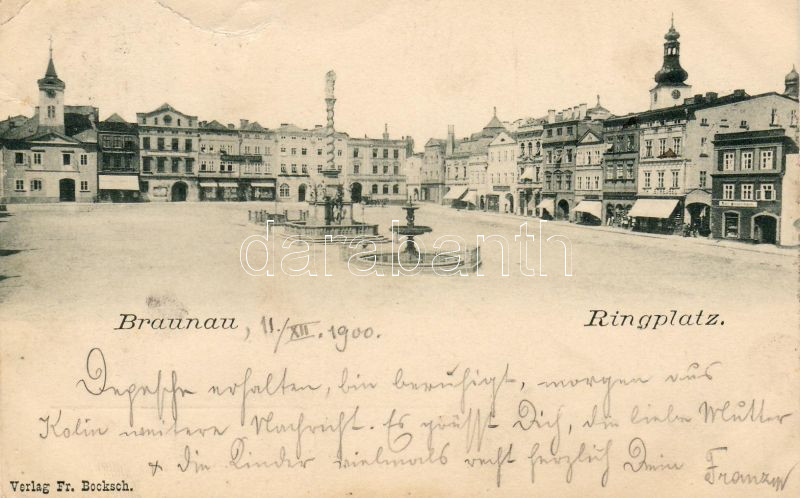 darabanth
Braunau, 11./XII. 1900.
Ringplatz.
Depesche erhalten, bin beruhigt, morgen aus
Kolin weitere Nachricht. Es grüsst Dich, die liebe Mutter
+ die Kinder vielmals recht herzlich Dein Franz
Verlag Fr. Bocksch.